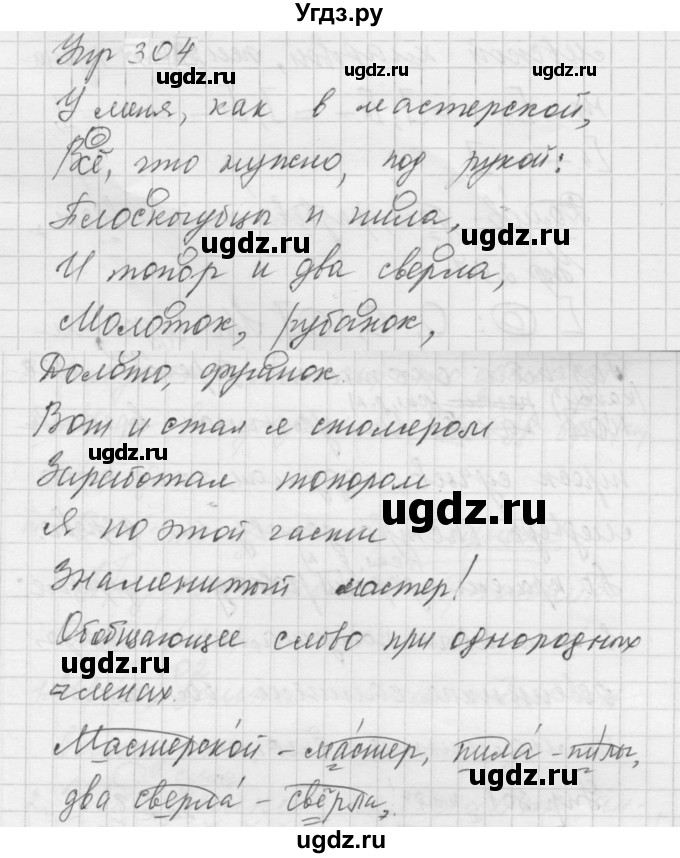 Угдз.ру
Упр 304
ugdz.ru ugdz.ru
У меня, как в мастерской,
Всё, что нужно, под рукой:
Плоскогубцы и пила,
ugdz.ru ugdz.ru
И топор и два сверла,
Молоток, рубанок,
ugdz.ru ugdz.ru
Долото, фуганок.
Вот и стал я столяром
ugdz.ru
Заработал топором
ugdz.ru ugdz.ru
Я по этой части
Знаменитый мастер!
ugdz.ru
Обобщающее слово при однородных
ugdz.ru
членах.
Мастерской – мастер, пила – пилы,
ugdz.ru
два сверла – свёрла,
ugdz.ru ugdz.ru
Угдз.ру